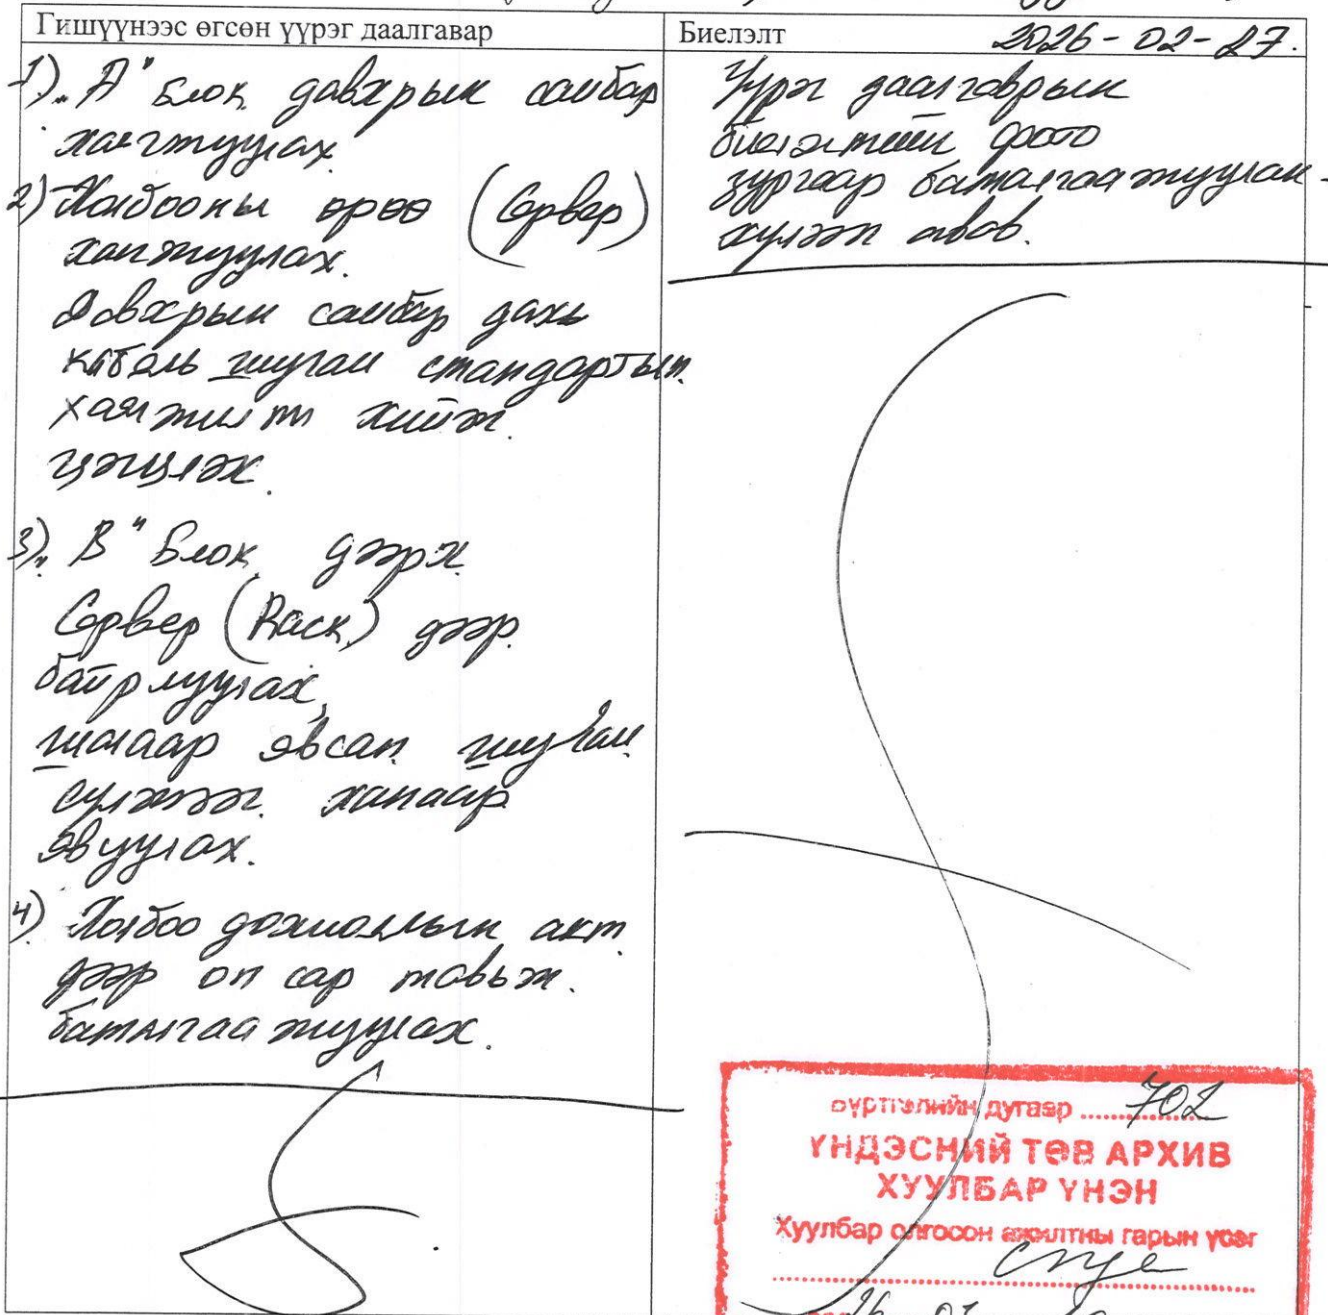 Гишүүнээс өгсөн үүрэг даалгавар
1) „А" Блок давхрын самбар
хаягжуулах
2) Холбооны өрөө (Сервер)
хаягжуулах.
Давхрын самбар дахь
кабель шугам стандартын
хаягжилт хийж
цэгцлэх.
3) „В" Блок дээрх
Сервер (Rack) дээр
байрлуулах,
шалаар явсан шугам
сүлжээг ханаар
явуулах.
4) Холбоо дохиоллын акт
дээр он сар тавьж
баталгаажуулах.
Биелэлт 2026-02-27.
Үүрэг даалгаврын
биелэлтийн фото
зургаар баталгаажуулан
хүлээн авов.
Бүртгэлийн дугаар 702
ҮНДЭСНИЙ ТӨВ АРХИВ
ХУУЛБАР ҮНЭН
Хуулбар олгосон ажилтны гарын үсэг